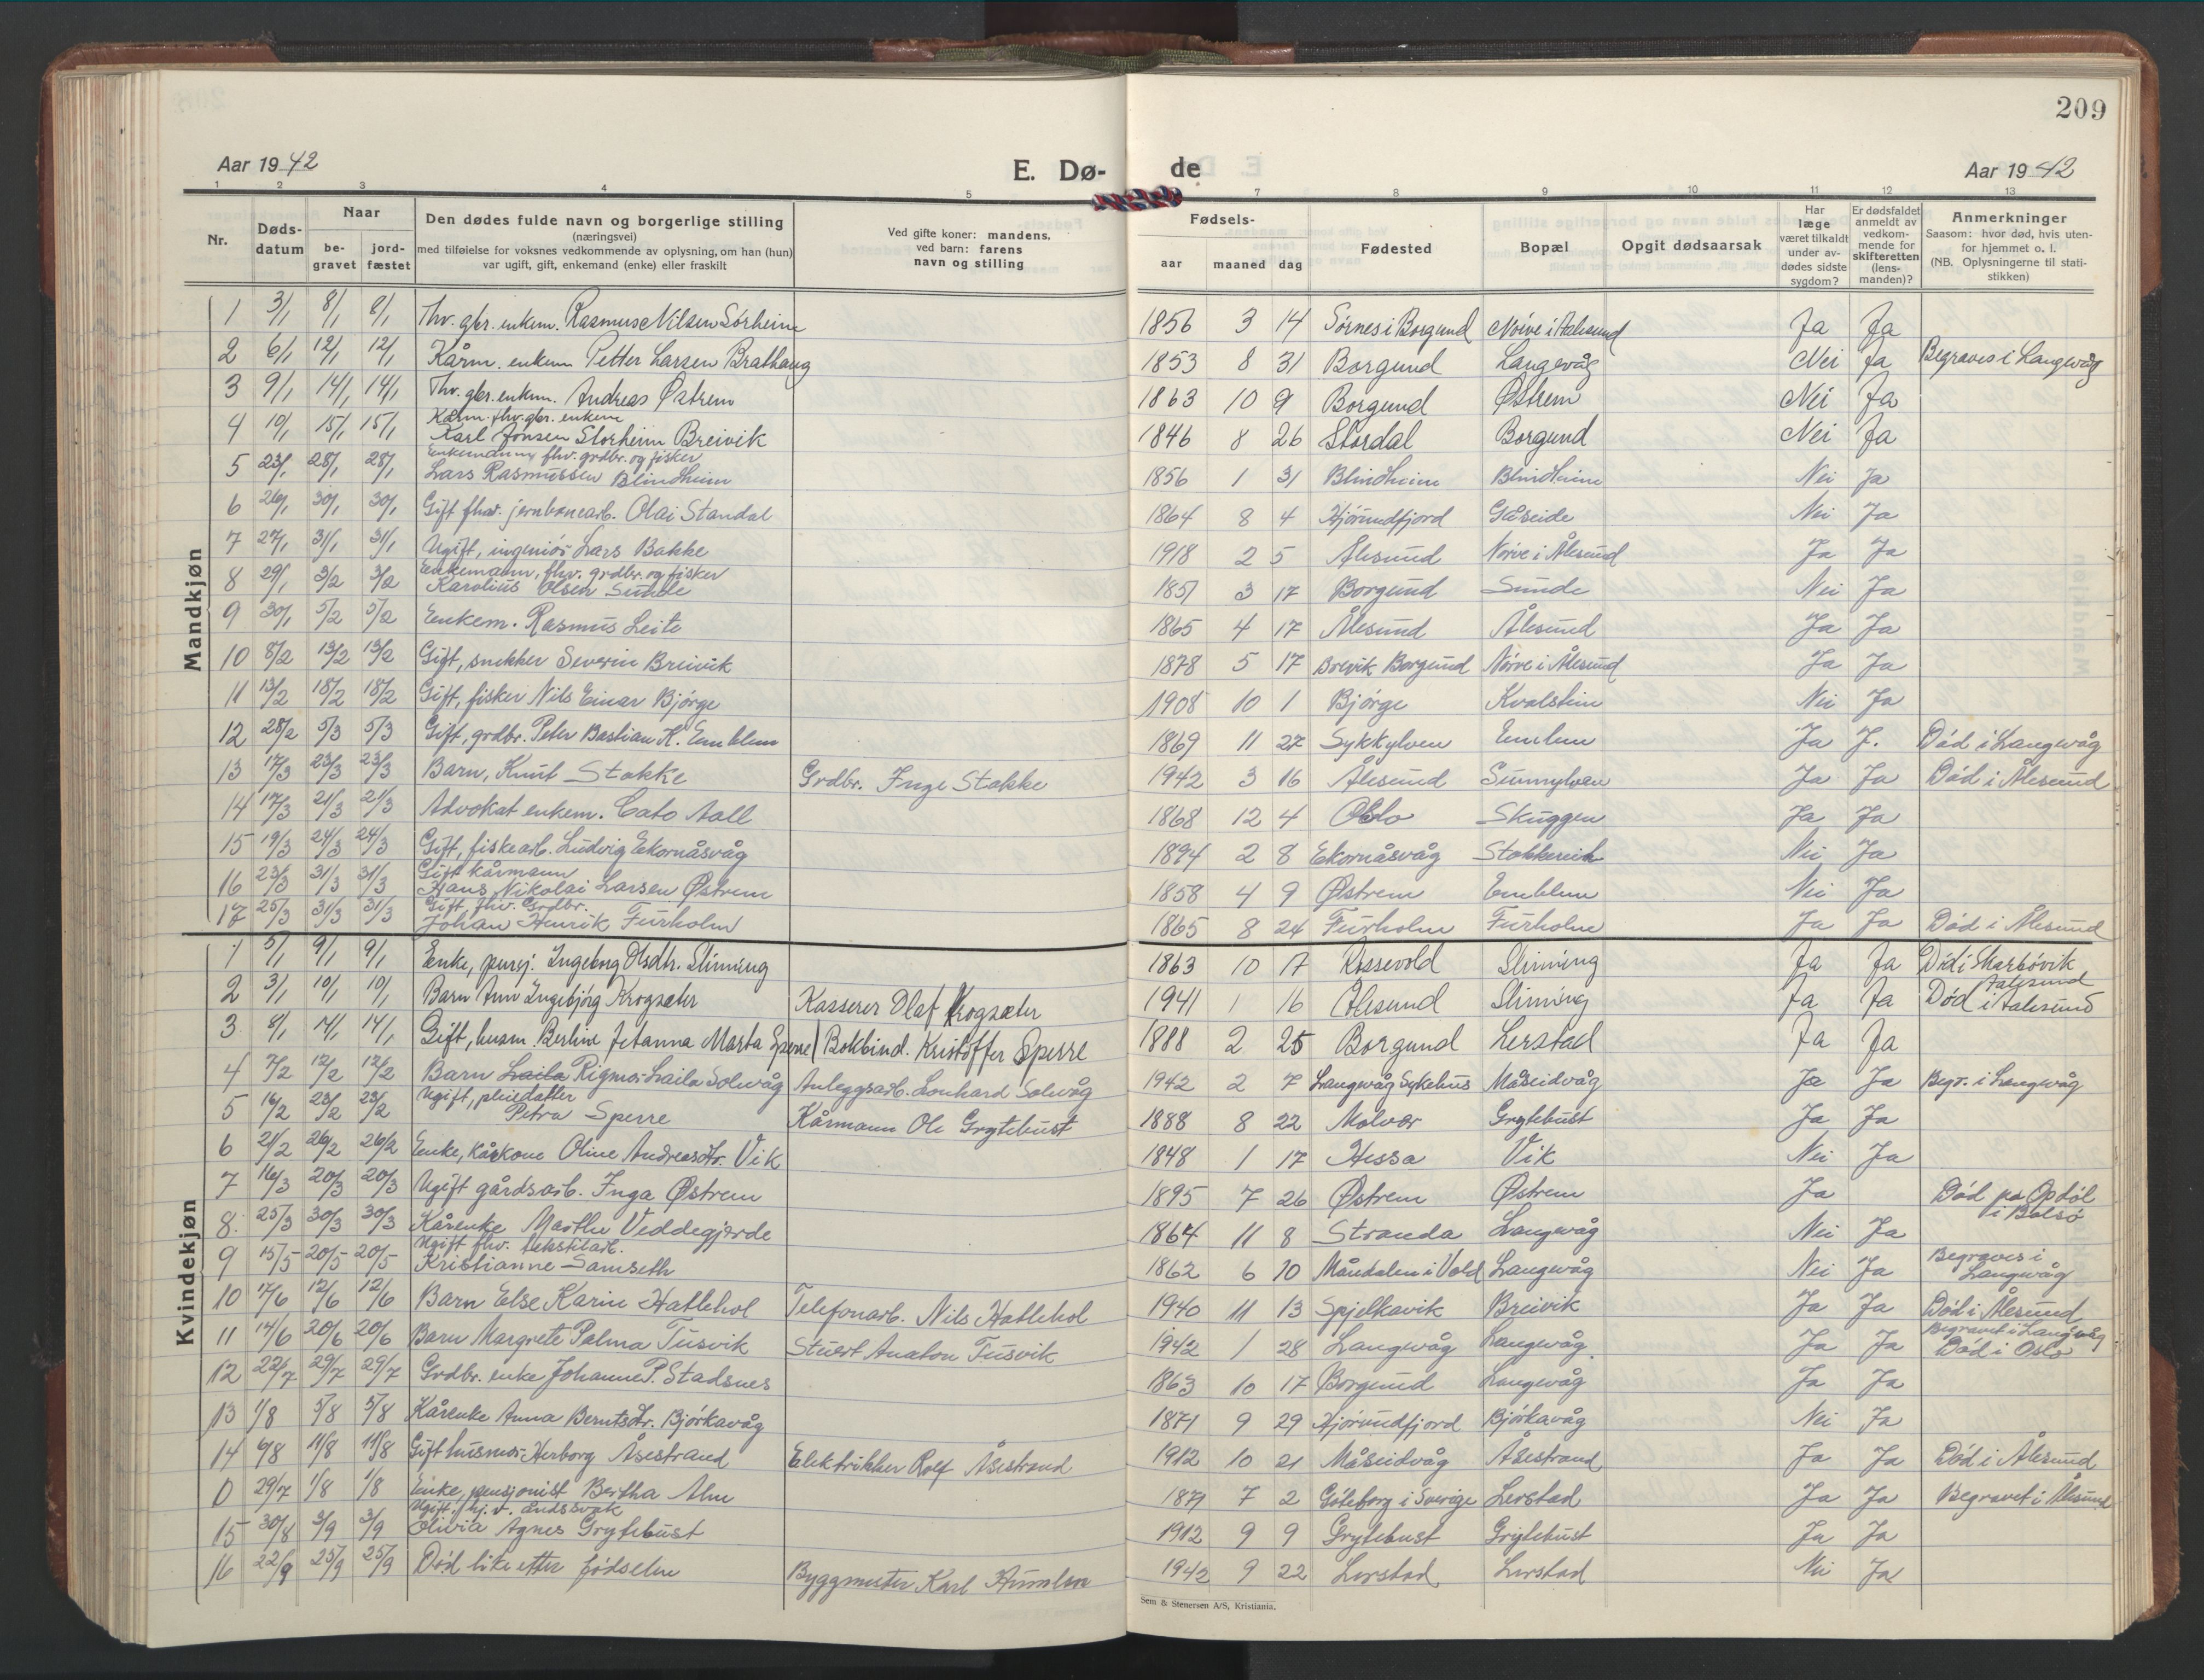 209
Aar 1942
E. Dø-
de
Aar 1942
1 2 3 4 5 7 8 9 10 11 12 13
Nr.
Døds-
datum
Naar
be-
gravet
jord-
fæstet
Den dødes fulde navn og borgerlige stilling
(næringsvei)
med tilføielse for voksnes vedkommende av oplysning, om han (hun)
var ugift, gift, enkemand (enke) eller fraskilt
Ved gifte koner: mandens,
ved barn: farens
navn og stilling
Fødsels-
aar maaned dag
Fødested
Bopæl
Opgit dødsaarsak
Har
læge
været tilkaldt
under av-
dødes sidste
sygdom?
Er dødsfaldet
anmeldt av
vedkom-
mende for
skifteretten
(lens-
manden)?
Anmerkninger
Saasom: hvor død, hvis uten-
for hjemmet o. l.
(NB. Oplysningerne til stati-
stikken)
Mandkjøn
1 3/1 8/1 8/1 Fhv. gbr. enkem. Rasmus Nilsen Sørheim 1856 3 14 Sørnes i Borgund Nørve i Aalesund Ja Ja
2 6/1 12/1 12/1 Kårm. enkem Petter Larsen Brathaug 1853 8 31 Borgund Langevåg Nei Ja Begraves i Langevåg
3 9/1 14/1 14/1 Fhv. gbr. enkem. Andreas Østrem 1863 10 9 Borgund Østrem Nei Ja
4 10/1 15/1 15/1 Kårm. fhv. gbr. enkem
Karl Jonsen Storheim Breivik 1846 8 26 Stordal Borgund Nei Ja
5 23/1 28/1 28/1 Enkemann fhv. grdbr. og fisker
Lars Rasmussen Blindheim 1856 1 31 Blindheim Blindheim Nei Ja
6 26/1 30/1 30/1 Gift fhv. jernbanearb. Olai Standal 1864 8 4 Hjørundfjord Gåseide Nei Ja
7 27/1 31/1 31/1 Ugift, ingeniør Lars Bakke 1918 2 5 Ålesund Nørve i Ålesund Ja Ja
8 29/1 3/2 3/2 Enkemann, fhv. grdbr. og fisker
Karolius Olsen Sunde 1851 3 17 Borgund Sunde Nei Ja
9 30/1 5/2 5/2 Enkem. Rasmus Leite 1865 4 17 Ålesund Ålesund Ja Ja
10 8/2 13/2 13/2 Gift, snekker Severin Breivik 1878 5 17 Brevik Borgund Nørve i Ålesund Ja Ja
11 13/2 18/2 18/2 Gift, fisker Nils Einar Bjørge 1908 10 1 Bjørge Kvalstein Nei Ja
12 28/2 5/3 5/3 Gift, grdbr. Peter Bastian K. Emblem 1869 11 27 Sykkylven Emlem Ja J. Død i Langevåg
13 17/3 23/3 23/3 Barn, Knut Stokke Grdbr. Inge Stokke 1942 3 16 Ålesund Sunnylven Ja Ja Død i Ålesund
14 17/3 21/3 21/3 Advokat enkem. Cato Aall 1868 12 4 Oslo Skuggen Ja Ja
15 19/3 24/3 24/3 Gift, fiskearb. Ludvig Ekornåsvåg 1894 2 8 Ekornåsvåg Stokkereit Nei Ja
16 23/3 31/3 31/3 Gift kårmann
Hans Nikolai Larsen Østrem 1858 4 9 Østrem Emblem Nei Ja
17 25/3 31/3 31/3 Gift, fhv. Grdbr.
Johan Henrik Furholm 1865 8 24 Furholm Furholm Ja Ja Død i Ålesund
Kvindekjøn
1 5/1 9/1 9/1 Enke, pensj. Ingeborg Olsdtr. Slinning 1863 10 17 Rossevold Slinning Ja Ja Død i Skarbøvik
Aalesund
2 3/1 10/1 10/1 Barn Ann Ingebjørg Krogsæter Kasserer Olaf Krogsæter 1941 1 16 Ålesund Slinning Ja Ja Død i Aalesund
3 8/1 14/1 14/1 Gift, husm. Berline Jetanna Marta Sperre Bokbind. Kristoffer Sperre 1888 2 25 Borgund Lerstad Ja Ja
4 7/2 12/2 12/2 Barn Laila Rigmor Laila Solevåg Anleggsarb. Lonhard Solevåg 1942 2 7 Langevåg Sykehus Måseidvåg Ja Ja Begr. i Langevåg
5 16/2 23/2 23/2 Ugift, pleiedatter
Petra Sperre Kårmann Ole Grytebust 1888 8 22 Molvær Grytebust Ja Ja
6 21/2 26/2 26/2 Enke, kårkone Oline Andreasdtr. Vik 1848 1 17 Hessa Vik Nei Ja
7 16/3 20/3 20/3 Ugift gårdsarb. Inga Østrem 1895 7 26 Østrem Østrem Ja Død på Opdøl
i Bolsø
8 25/3 30/3 30/3 Kårenke Marthe Veddegjerde 1864 11 8 Stranda Langevåg Nei Ja
9 15/5 20/5 20/5 Ugift fhv. tekstilarb.
Kristianne Samseth 1862 6 10 Måndalen i Vold Langevåg Nei Ja Begraves i
Langevåg
10 7/6 12/6 12/6 Barn Else Karin Hatlehol Telefonarb. Nils Hatlehol 1940 11 13 Spjelkavik Breivik Ja Ja Død i Ålesund
11 14/6 20/6 20/6 Barn Margrete Palma Tusvik Stuert Anaton Tusvik 1942 1 28 Langevåg Langevåg Ja Ja Begravet i Langevåg
Død i Oslo
12 22/7 29/7 29/7 Grdbr. enke Johanne P. Stadsnes 1863 10 17 Borgund Langevåg Ja Ja
13 1/8 5/8 5/8 Kårenke Anna Berntsdtr. Bjørkavåg 1871 9 29 Hjørundfjord Bjørkavåg Nei Ja
14 6/8 11/8 11/8 Gift husmor Herborg Åsestrand Elektrikker Rolf Åsestrand 1912 10 21 Måseidvåg Åsestrand Ja Ja Død i Ålesund
0 29/7 1/8 1/8 Enke, pensjonist Bertha Alm 1871 7 2 Göteborg i Sverige Lerstad Ja Ja Begravet i Ålesund
15 30/8 3/9 3/9 Ugift, hj.v. åndssvak
Olivia Agnes Grytebust 1912 9 9 Grytebust Grytebust Ja Ja
16 22/9 25/9 25/9 Død like etter fødselen Byggmester Karl Humlen 1942 9 22 Lerstad Lerstad Nei Ja
Sem & Stenersen A/S, Kristiania.